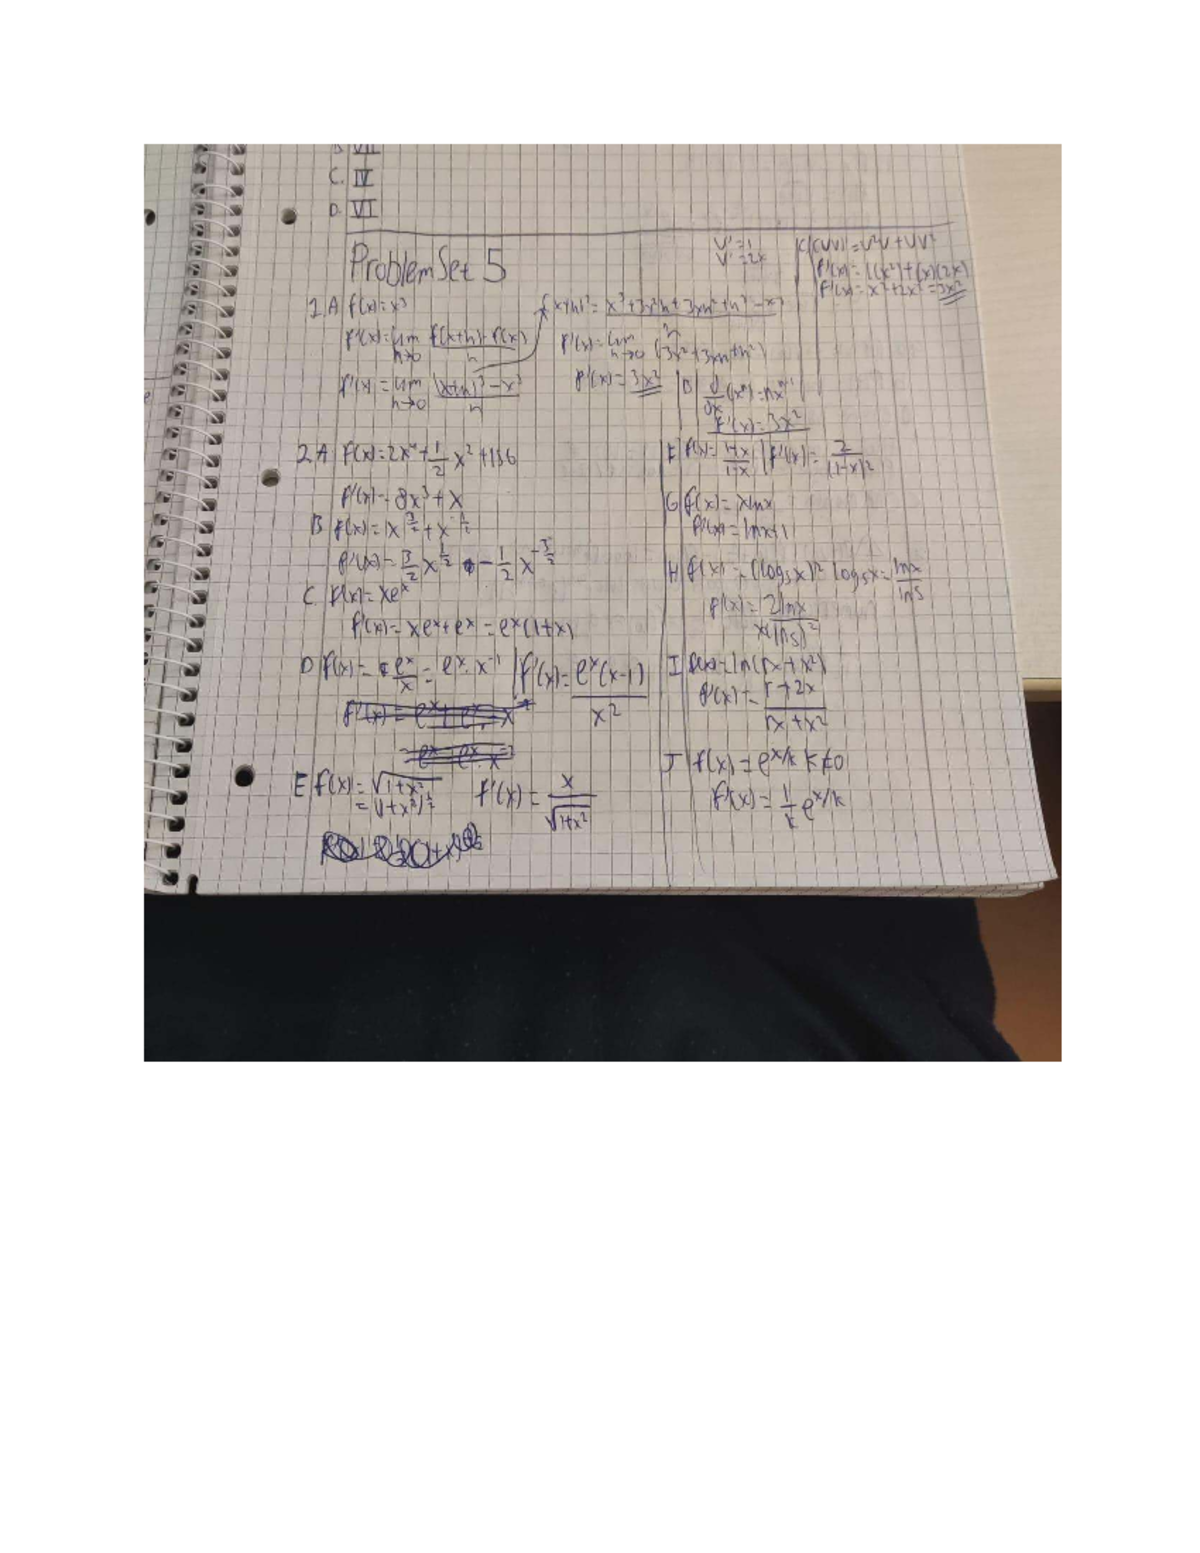 C. IV
D. VI
Problem Set 5
1 A f(x) = x³
f'(x) = lim h→0 f(x+h) - f(x) / h
f'(x) = lim h→0 (x+h)³ - x³ / h
(x+h)³ = x³ + 3x²h + 3xh² + h³ - x³ / h
f'(x) = lim h→0 (3x² + 3xh + h²)
f'(x) = 3x²
B d/dx (xⁿ) = nxⁿ⁻¹
f'(x) = 3x²
U' = 1
V' = 2x
C (UV)' = U'V + UV'
f'(x) = 1(x²) + (x)(2x)
f'(x) = x² + 2x² = 3x²
2 A f(x) = 2x⁴ + 1/2 x² + 136
f'(x) = 8x³ + x
B f(x) = x^3/2 + x^-1/2
f'(x) = 3/2 x^1/2 - 1/2 x^-3/2
C f(x) = xeˣ
f'(x) = xeˣ + eˣ = eˣ(1+x)
D f(x) = eˣ/x = eˣ · x⁻¹ | f'(x) = eˣ(x-1) / x²
E f(x) = √1+x²
= (1+x²)^1/2
f'(x) = x / √1+x²
F f(x) = 1+x / 1-x | f'(x) = 2 / (1-x)²
G f(x) = xlnx
f'(x) = lnx+1
H f(x) = (log₅x)² log₅x = lnx / ln5
f'(x) = 2lnx / x(ln5)²
I f(x) = ln(rx + x²)
f'(x) = r+2x / rx + x²
J f(x) = e^x/k k≠0
f'(x) = 1/k e^x/k